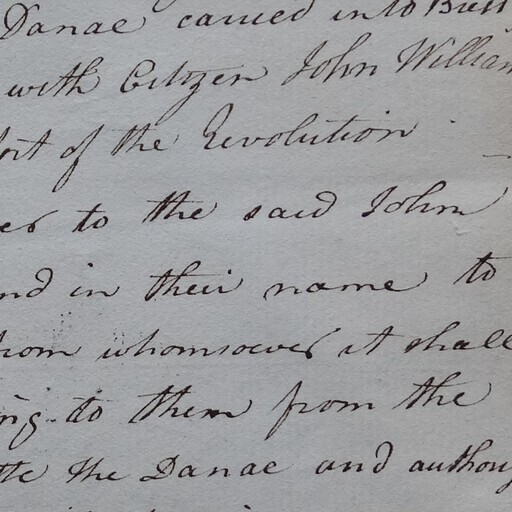 Danae carried into Brest
with Citizen John William
ort of the Revolution
er to the said John
nd in their name to
rom whomsoever it shall
ing to them from the
tte the Danae and authory